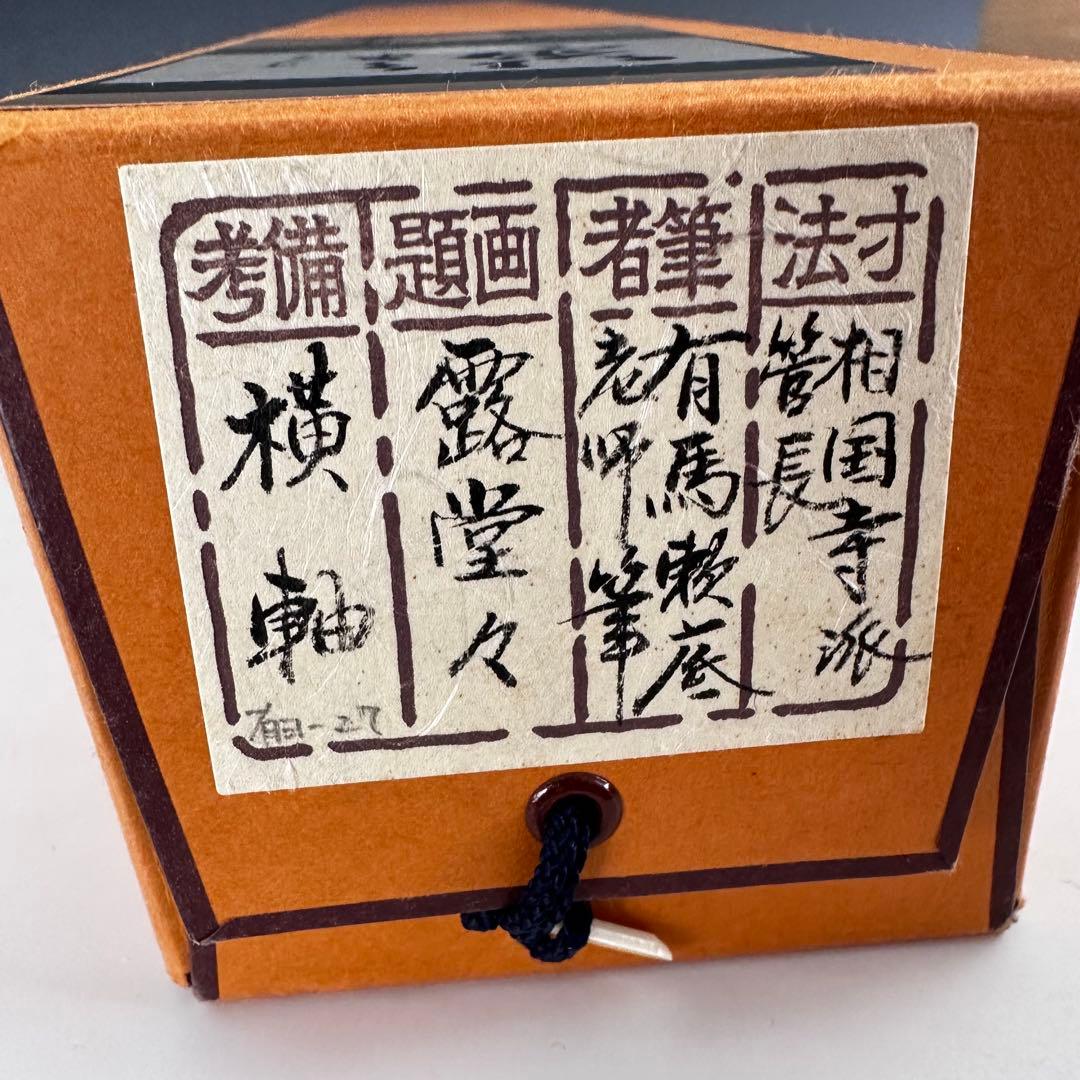 寸法
相国寺派
管長
筆者
有馬頼底
老師筆
画題
露堂々
備考
横軸